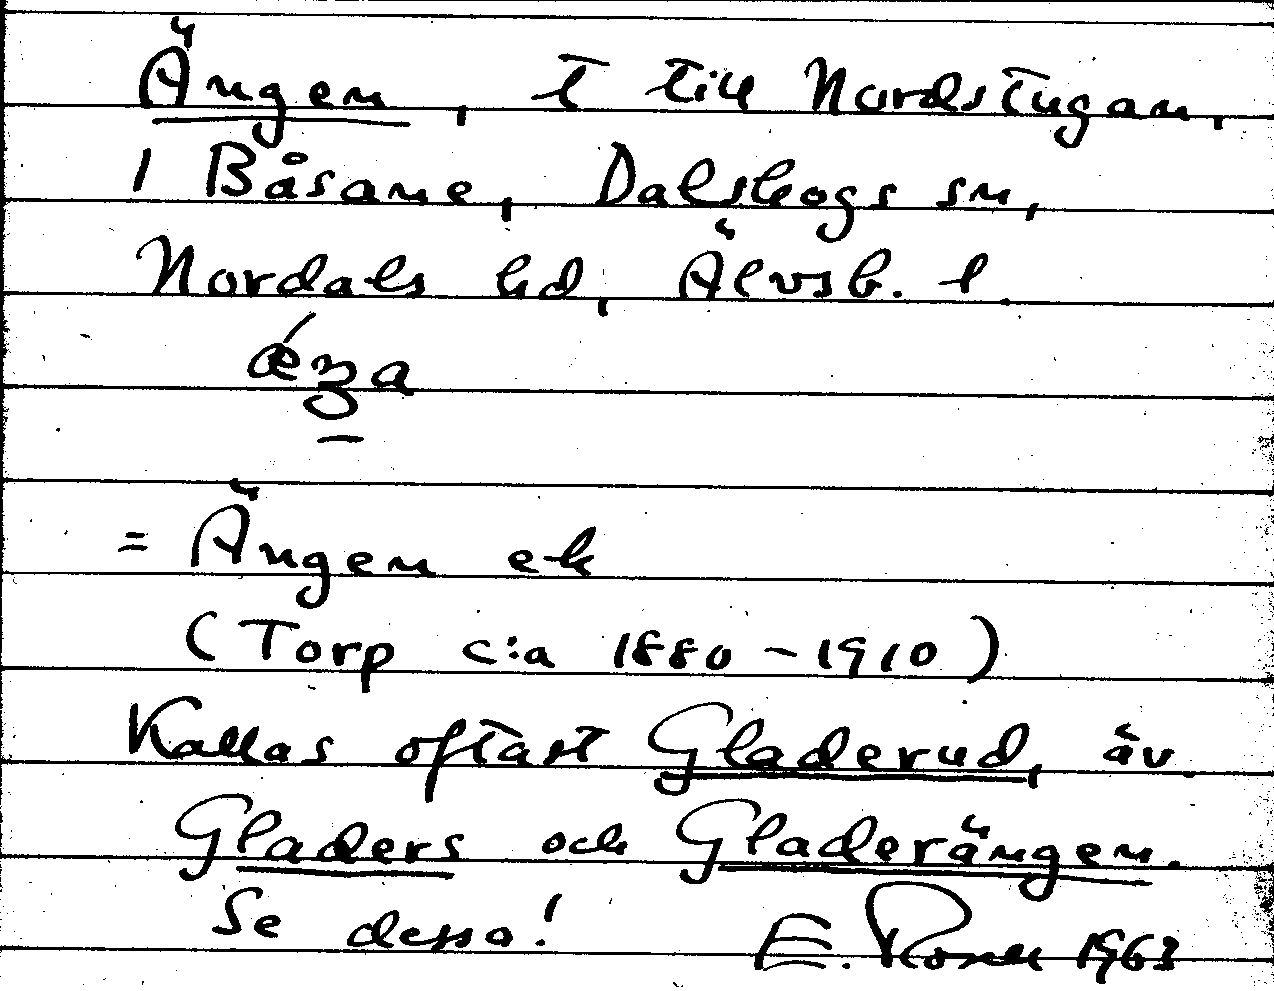 Ängen, t till Nordstugan,
1 Båsane, Dalskogs sn,
Nordals hd, Älvsb. l.
= Ängen ek
(Torp c:a 1880-1910)
Kallas oftast Gladerud, äv.
Gladers och Gladerängen.
Se dessa! E. 1963